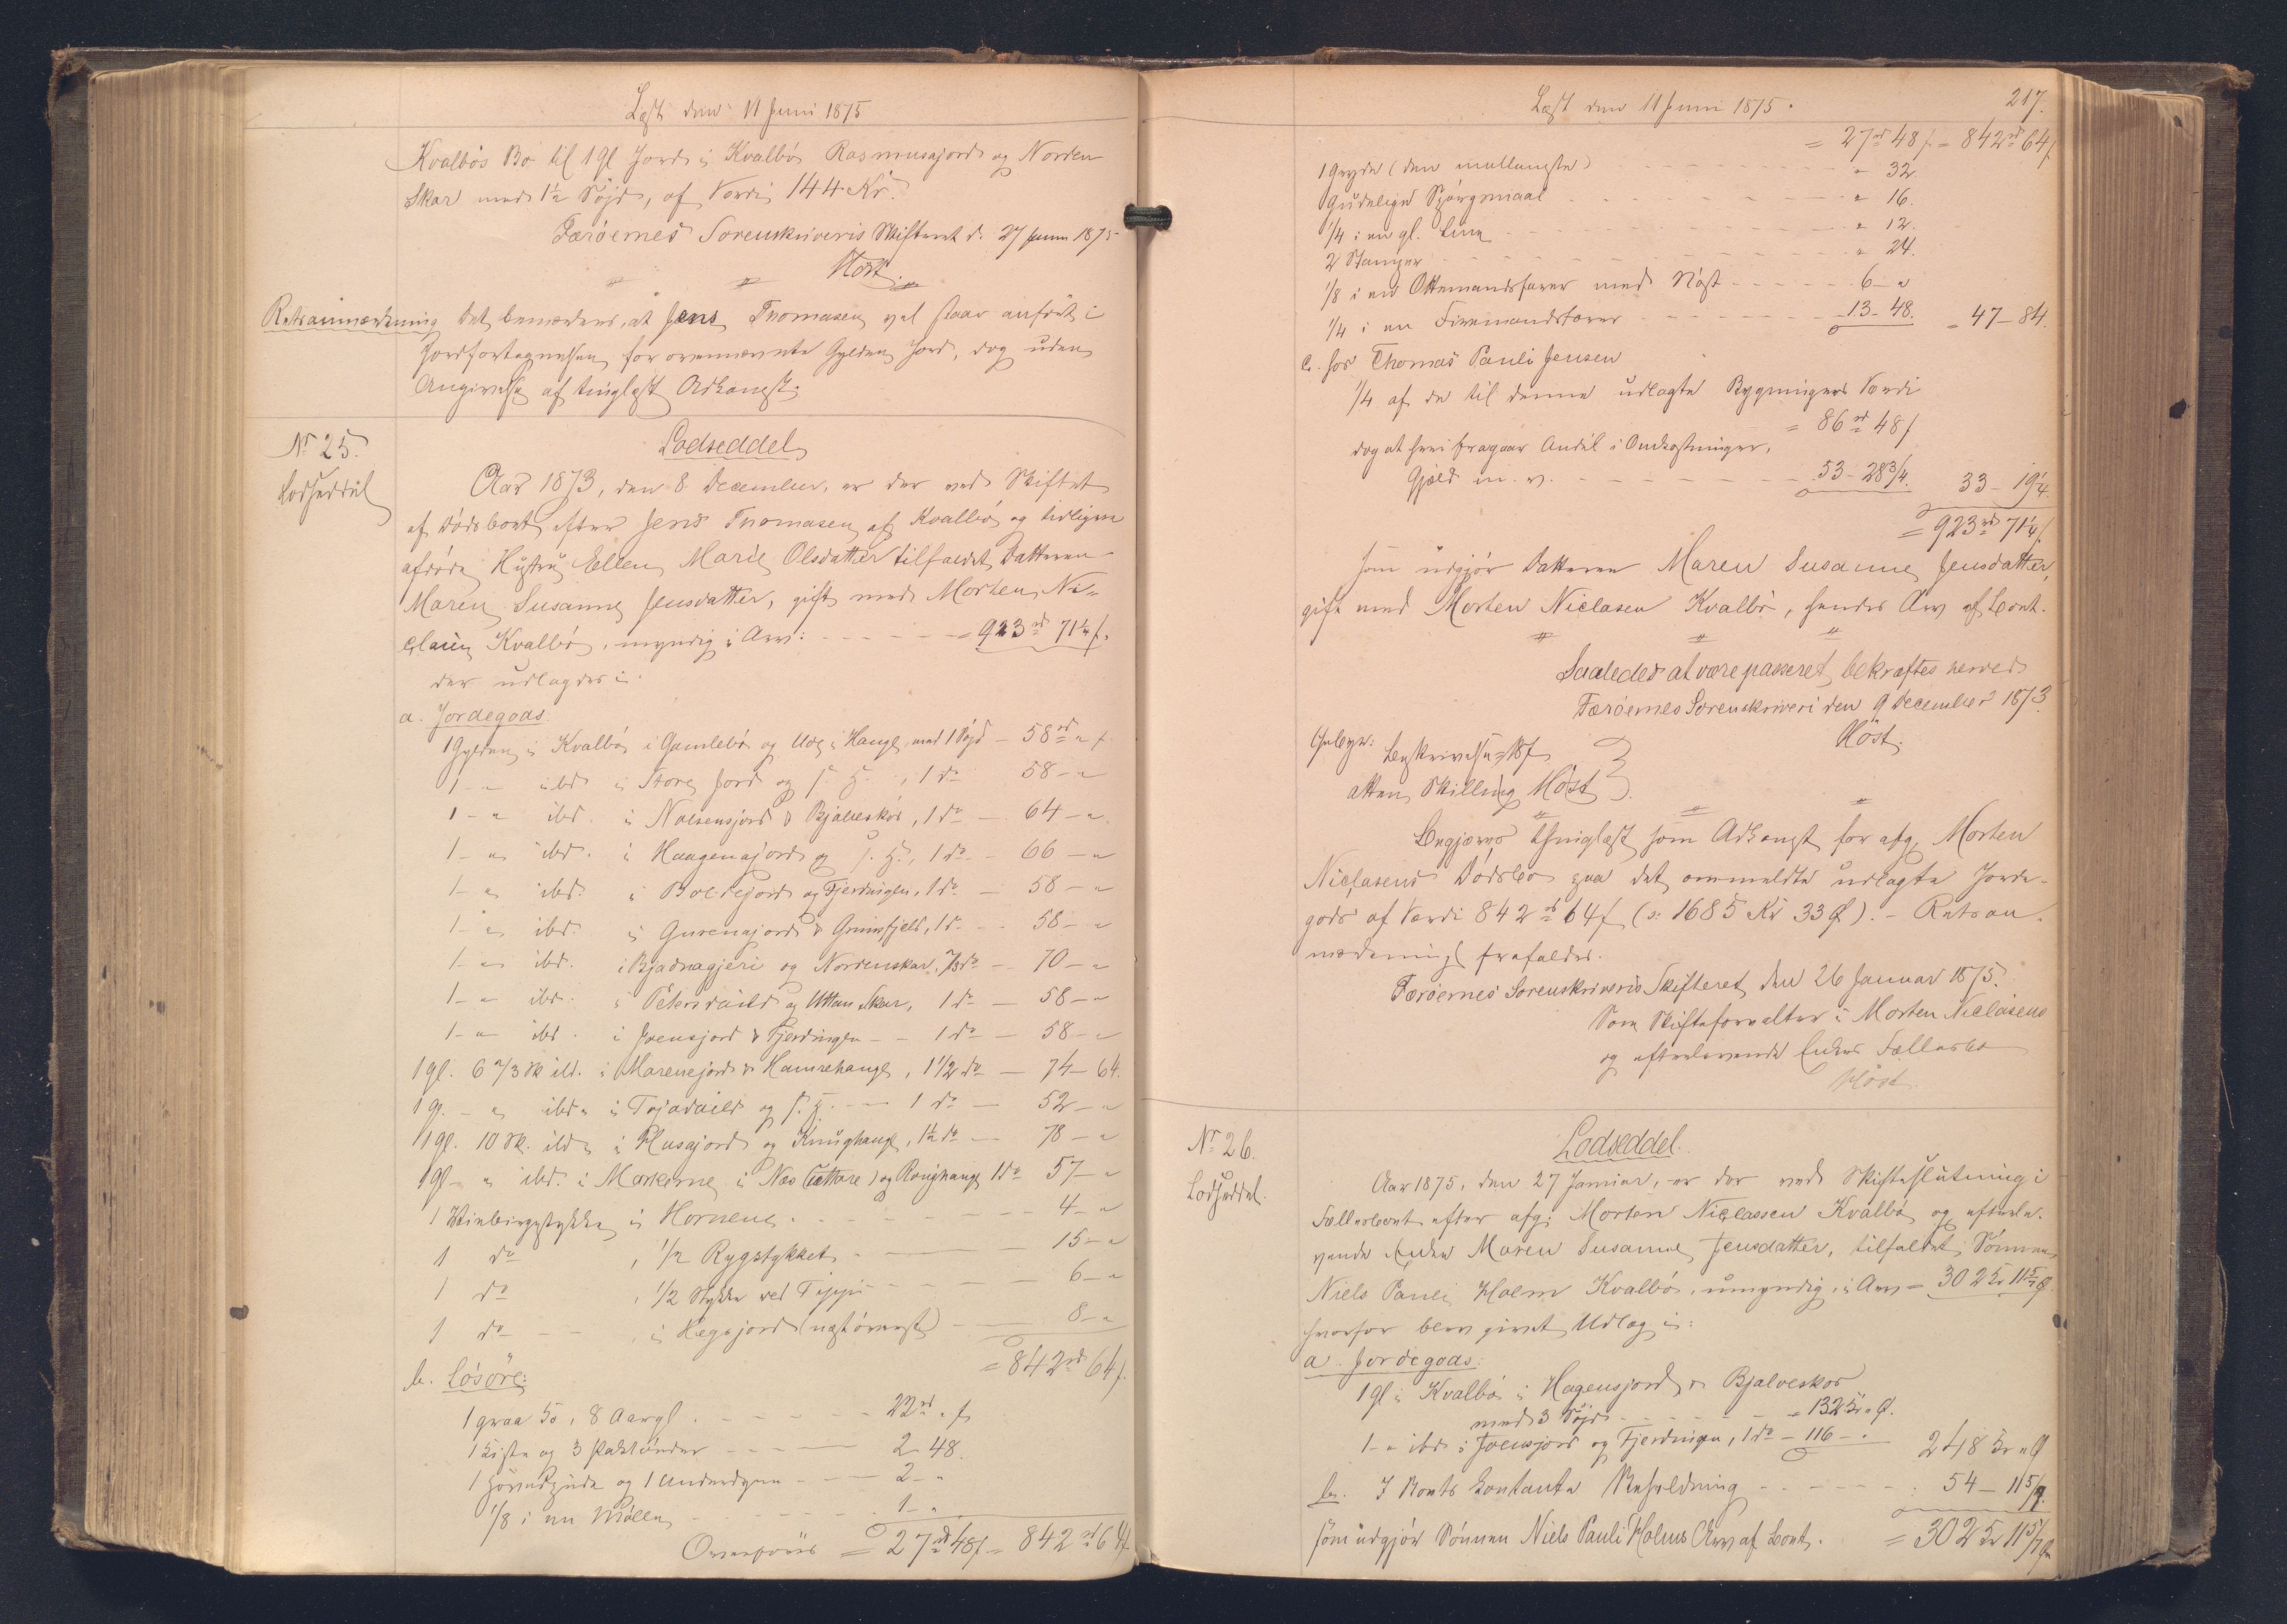 Læst den 11 Juni 1875
Kvalbös Bo til 1 gl Jord i Kvalbö Rasmusajord og Norden
Skar med 1½ Söjd, af Værdi 144 Kr.
Færöernes Sorenskriveris Skifteret d. 27 Januar 1875
Höst.
Retsanmærkning Det bemærkes, at Jens Thomasen vel staar anfört i
Jordfortegnelsen for ovennævnte Gylden Jord, dog uden
Angivelse af tinglæst Adkomst.
Nr 25.
Lodseddel
Lodseddel
Aar 1873, den 8 December, er der ved Skiftet
af Dödsboet efter Jens Thomasen af Kvalbö og tidligere
afdöde Hustru Ellen Marie Olsdatter tilfaldet Datteren
Maren Susanne Jensdatter, gift med Morten Ni-
clasen Kvalbö, myndig i Arv: - - - = 923 rd 71¼ ſ.
der udlagdes i:
a. Jordegods:
1 Gylden i Kvalbö i Gamlebö og Uds i Hauge, med 1 Söjd - 58 rd " ſ
1 - " ibd i Store Jord og s. H., 1 do 58 - "
1 - " ibd. i Nolsensjord & Bjalveskor, 1 do - 64 - "
1 - " ibd. i Haagenajord og s. H., 1 do - 66 - "
1 - " ibd. i Boldejord og Fjerdingen, 1 do - 58 - "
1 - " ibd. i Gurenajord & Grimsfjeld, 1 do - 58 - "
1 - " ibd. i Bjadnagjeri og Nordenskar, ⅞ do - 70 - "
1 - " ibd. i Petersdaild og Uttan Skar, 1 do - 58 - "
1 - " ibd. i Joensjord & Fjerdingen - - 1 do - 58 - "
1 gl. 6⅔ sk ibd. i Marenejord & Hamrehauge, 1½ do - 74 - 64.
1 gl. - " ibd. i Trjadaild og s. H. - 1 do - 52 - "
1 gl. 10 sk. ibd. i Husajord og Knughauge, 1½ do - 78 - "
1 gl - " ibd. i Markerne i Næs (Tættare) og Roughauge 1 do 57 - "
1 Hinbirgystykke i Hornene - - - 4 - "
1 do , ½ Rygstykket - - - 15 - "
1 do , ½ Stykke ved Tippi - - - 6 - "
1 do - - , i Hegsjord (næstöverst) - - 8 - "
= 842 rd 64 ſ.
b. Lösöre:
1 graa Ko, 8 Aar gl. - - - 22 rd " ſ
1 Kiste og 3 Saltönder - - - 2 - 48.
1 Hovedpude og 1 Underdyne - - - 2 - "
⅛ i en Mölle - - - 1 - "
Overföres = 27 rd 48 ſ = 842 rd 64 ſ
Læst den 11 Juni 1875.
217.
= 27 rd 48 ſ. = 842 rd 64 ſ
1 Gryde (den mellemste) - - - " 32.
Gudelige Spörgsmaal - - - " 16.
¼ i en gl. Line - - - " 12.
2 Stanger - - - " 24.
⅛ i en Ottemandsfarer med Nöst - - - 6 - "
¼ i en Firemandsfarer - - - 13 - 48. = 47 - 84.
c. hos Thomas Pauli Jensen
¼ af de til denne udlagte Bygningers Værdi
= 86 rd 48 ſ
dog at heri fragaar Andel i Omkostninger,
Gjæld m. v. - - - 53 - 28¾. 33 - 19¼.
= 923 rd 71¼ ſ
som udgjör Datteren Maren Susanne Jensdatter,
gift med Morten Niclasen Kvalbö, hendes Arv af Boet.
Saaledes at være passeret, bekræftes herved
Færöernes Sorenskriveri den 9 December 1873.
Höst.
Gebyr: Beskrivelse 18 ſ
atten Skilling Höst
Begjæres thinglæst som Adkomst for afg. Morten
Niclasens Dödsbo paa det ommeldte udlagte Jorde-
gods af Værdi 842 rd 64 ſ (ɔ: 1685 Kr 33 Ø). - Retsan-
mærkning frafaldes.
Færöernes Sorenskriveris Skifteret, den 26 Januar 1875.
Som Skifteforvalter i Morten Niclasens
og efterlevende Enkes Fællesbo
Höst.
Nr 26.
Lodseddel.
Lodseddel.
Aar 1875, den 27 Januar, er der ved Skifteslutning i
Fællesboet efter afg. Morten Niclassen Kvalbö og efterle-
vende Enke Maren Susanne Jensdatter, tilfaldet Sönnen
Niels Pauli Holm Kvalbö, umyndig, i Arv = 302 Kr 11 5/7 Ø.
hvorfor blev givet Udlæg i:
a. Jordegods:
1 gl i Kvalbö i Hagensjord & Bjalveskor
med 3 Söjd - - - = 132 Kr " Ø.
1 - " ibd i Joensjord og Fjerdingen, 1 do - 116 - " 248 Kr " Ø
b. I Boets Contante Beholdning - - - 54 - 11 5/7.
som udgjör Sönnen Niels Pauli Holms Arv af Boet. = 302 Kr 11 5/7 Ø